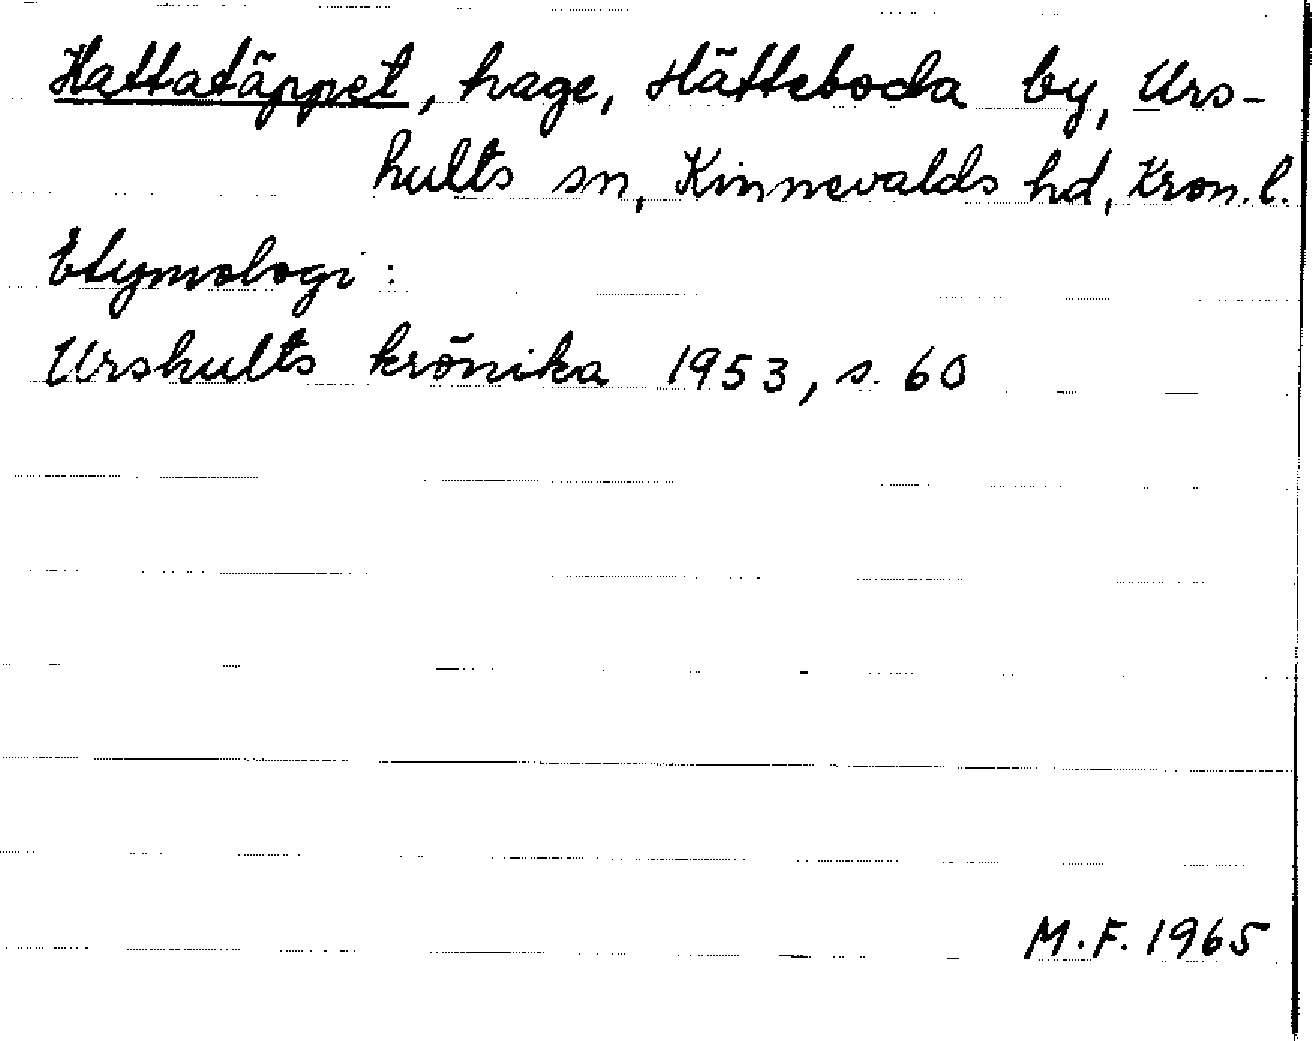 Hattatäppet, hage, Hätteboda by, Urs-
hults sn, Kinnevalds hd, Kron.l.
Etymologi:
Urshults krönika 1953, s. 60
M.F. 1965